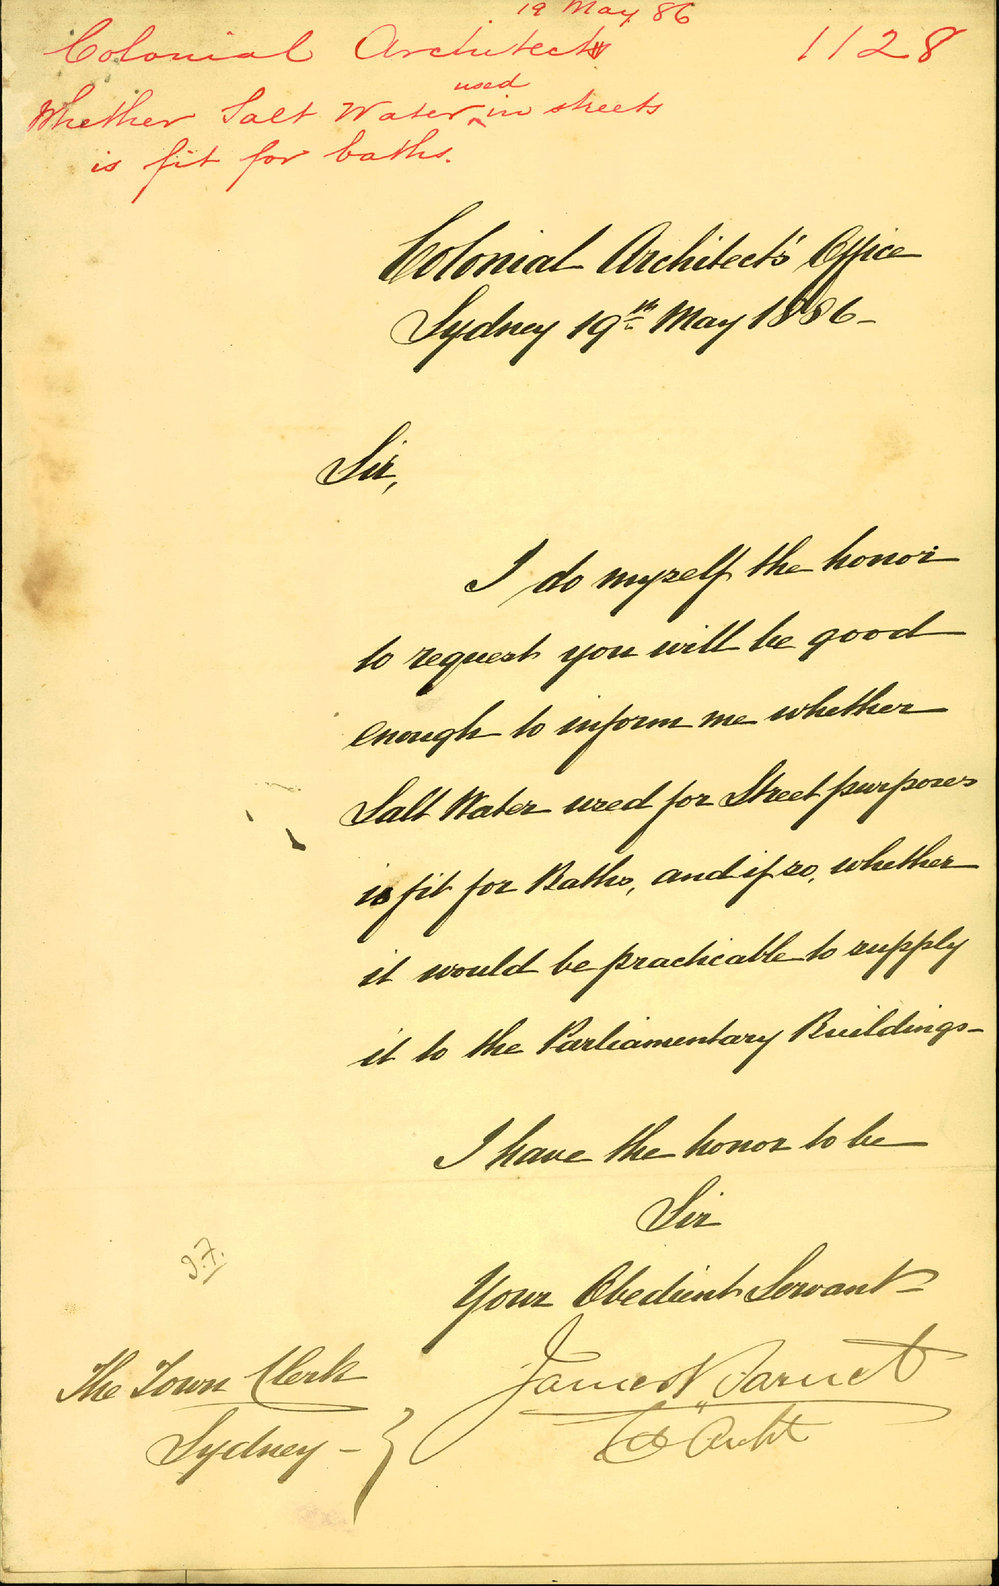 19 May 86
Colonial Architect
1128
Whether Salt Water used in streets
is fit for baths.
Colonial Architect's Office
Sydney 19th May 1886 -
Sir,
I do myself the honor
to request you will be good
enough to inform me whether
Salt Water used for Street purposes
is fit for Baths, and if so, whether
it would be practicable to supply
it to the Parliamentary Buildings -
I have the honor to be
Sir
Your Obedient Servant -
James Barnet
Col Archt
The Town Clerk
Sydney -